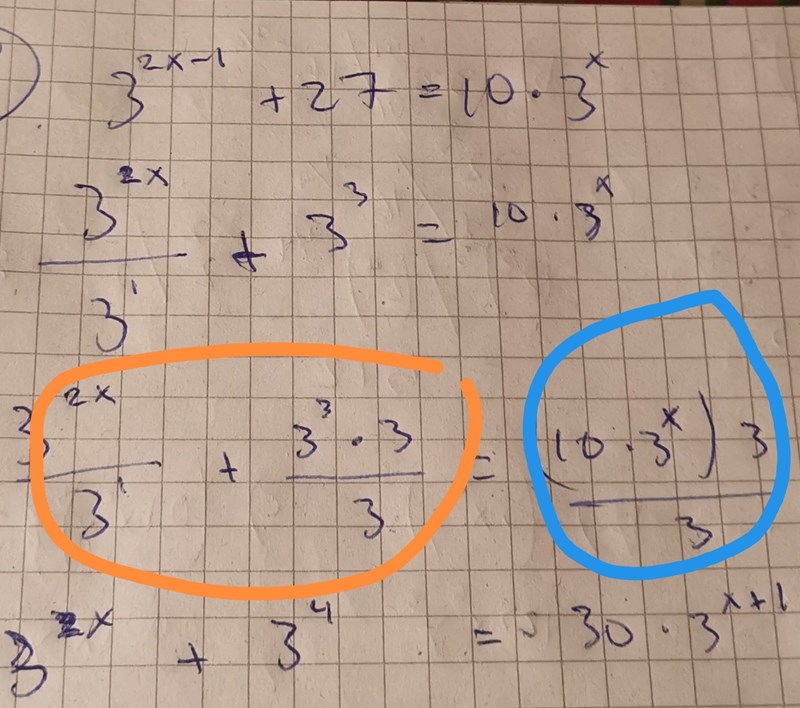 3^{2x-1} + 27 = 10 · 3^x
\frac{3^{2x}}{3^1} + 3^3 = 10 · 3^x
\frac{3^{2x}}{3^1} + \frac{3^3 · 3}{3} = \frac{(10 · 3^x) 3}{3}
3^{2x} + 3^4 = 30 · 3^{x+1}